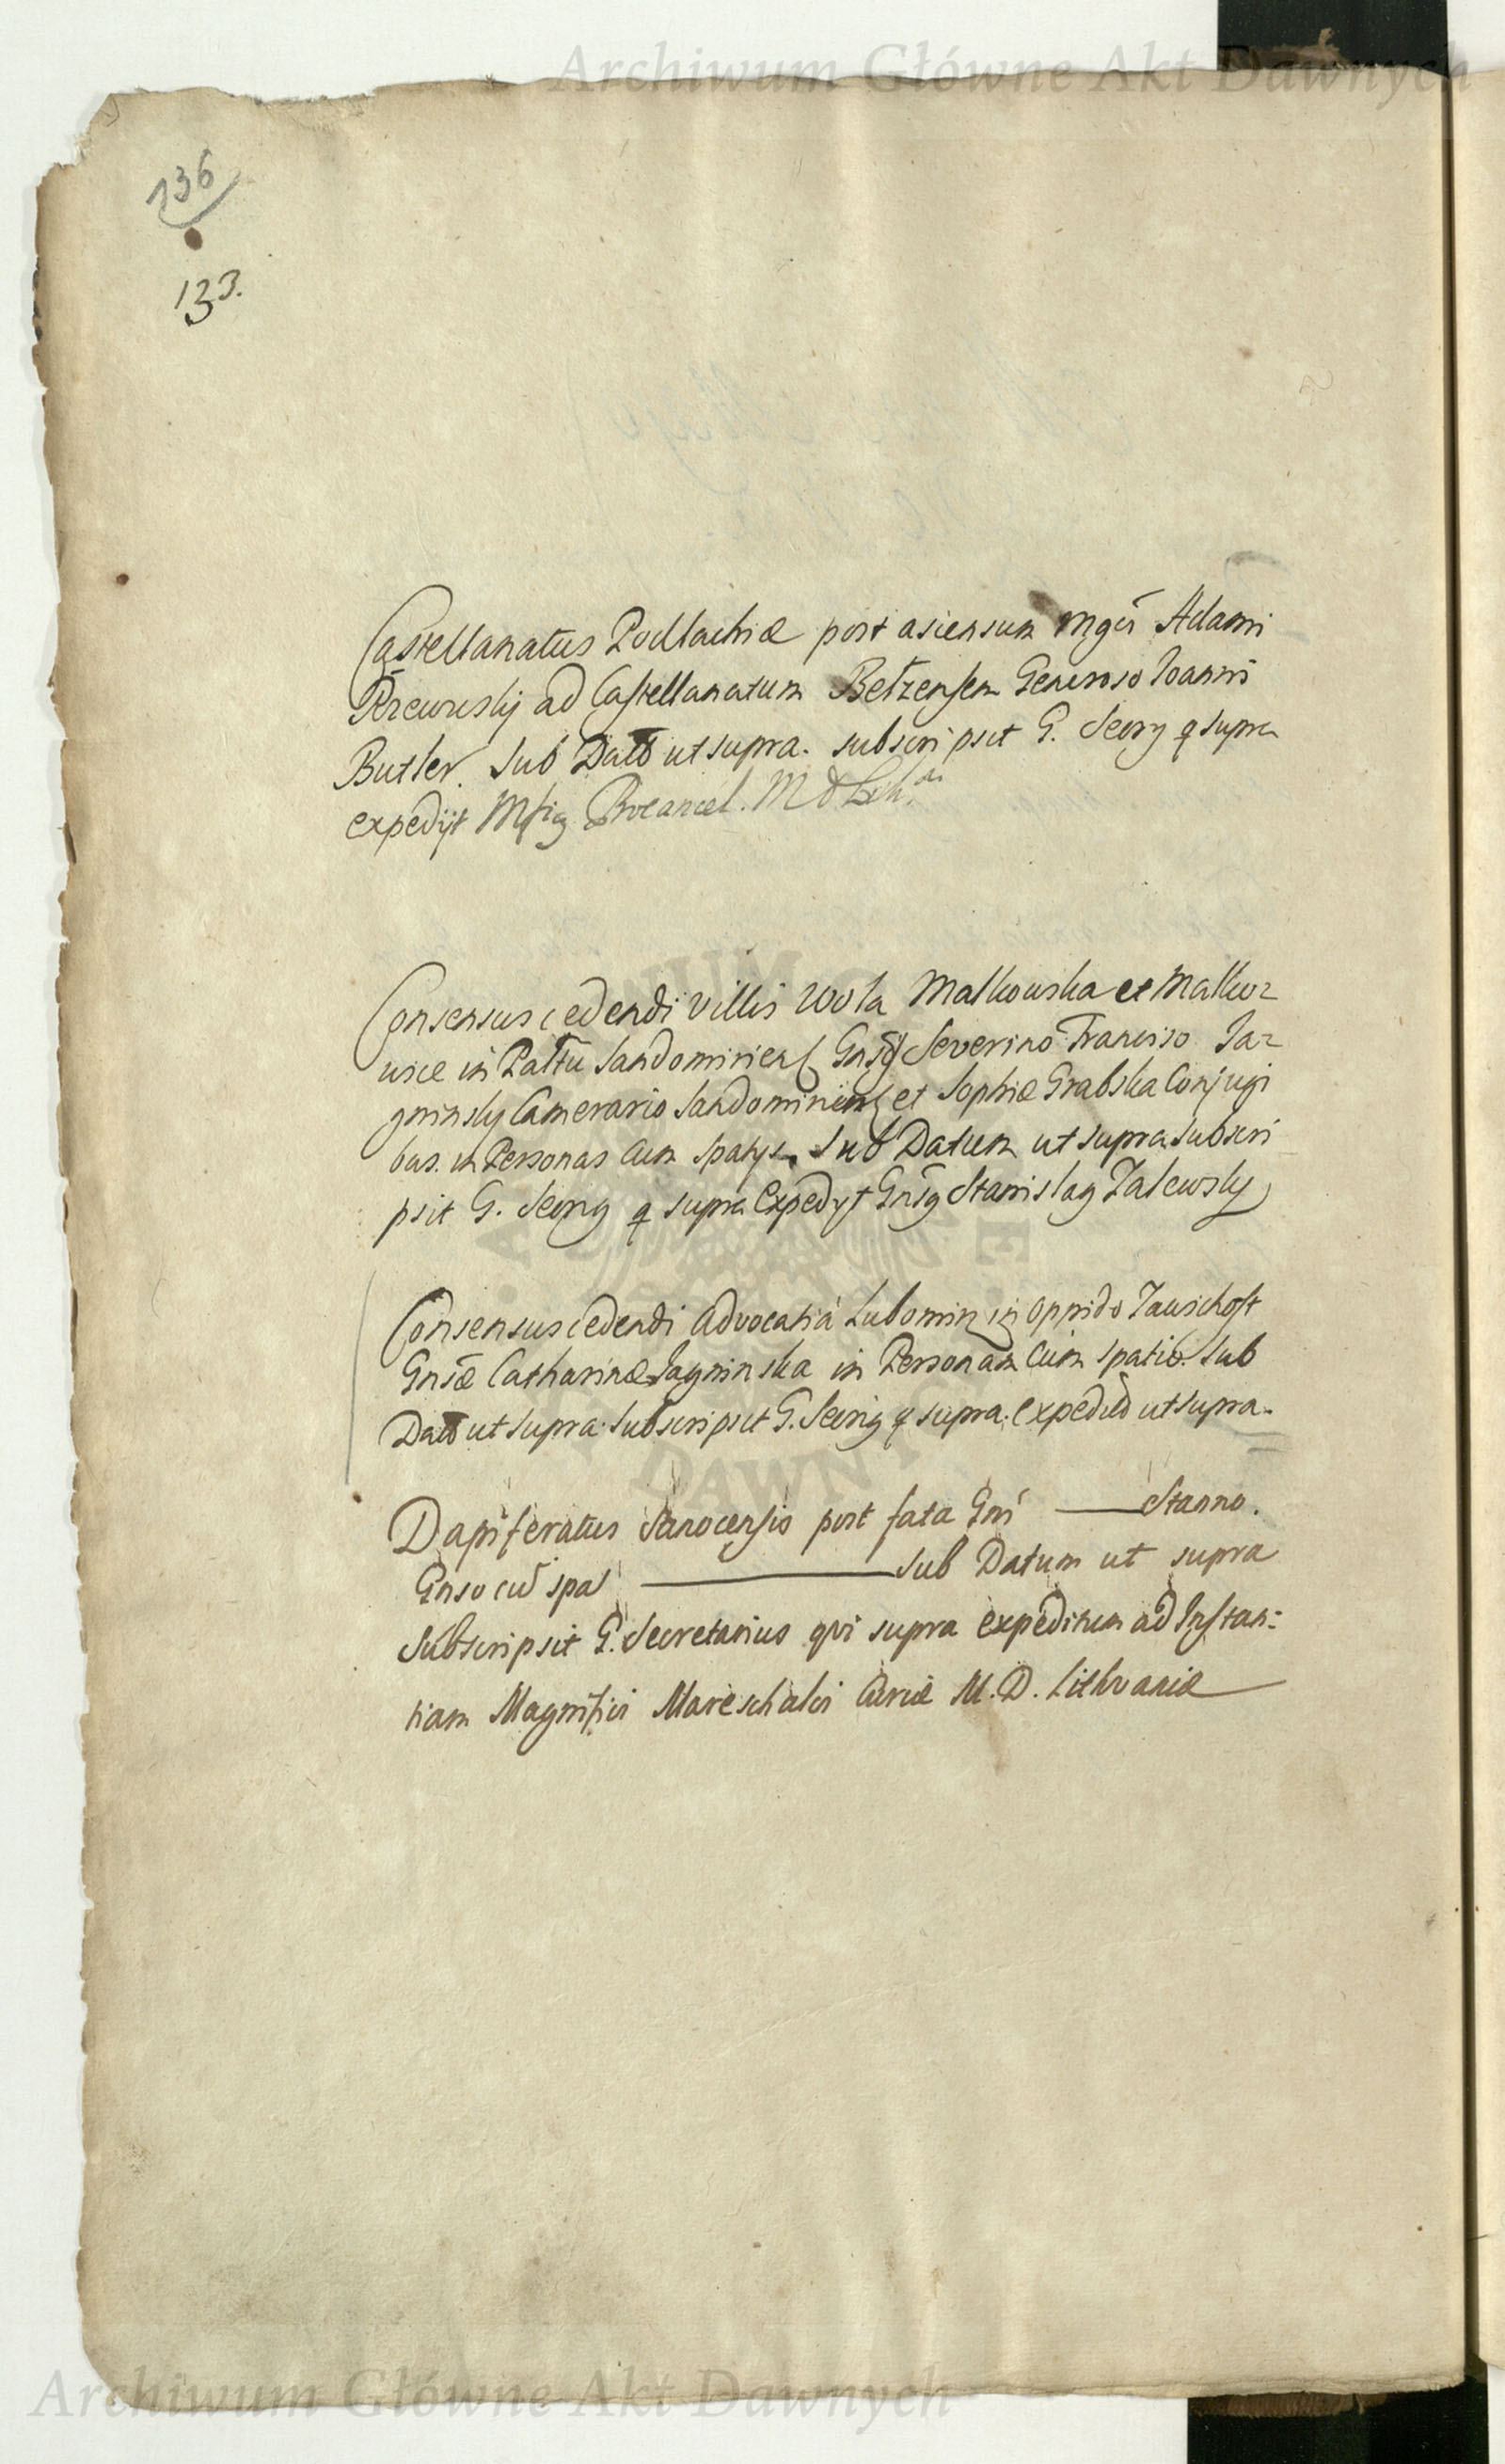 Archiwum Główne Akt Dawnych
136
133.
Castellanatus Podlachiæ post ascensum Mgci Adami
Rzewusky ad Castellanatum Betzensem Generoso Joanni
Butler. Sub Datt ut supra. subscripsit G. Secrg q supra
expedijt Mfig Procancel. M D Lith.
Consensus cedendi Villis Wola Malkowska et Malko=
wice in Pallu Sandomiriens Gnso Severino Francisco Ja=
gninsky Camerario Sandomiriens et Sophiæ Grabska Conjugi
bus. in Personas cum spatys Sub Datum ut supra subscri
psit G. Secrig q supra Expedyt Gnsg Stanislag Zalewsky
Consensus cedendi Advocatiá Lubomin in oppido Zawichost
Gnsæ Catharinæ Jagninska in Personam cum spatio. Sub
Datt ut supra. Subscripsit G. Secrig q supra. Expedid ut supra.
Dapiferatus Sanocensis post fata Gni —— Stanno.
Gnso cu spa —— Sub Datum ut supra
Subscripsit G. Secretarius qvi supra expeditum ad Instan:
tiam Magnifici Mareschalci Curiæ M. D. Lithvaniæ
Archiwum Główne Akt Dawnych